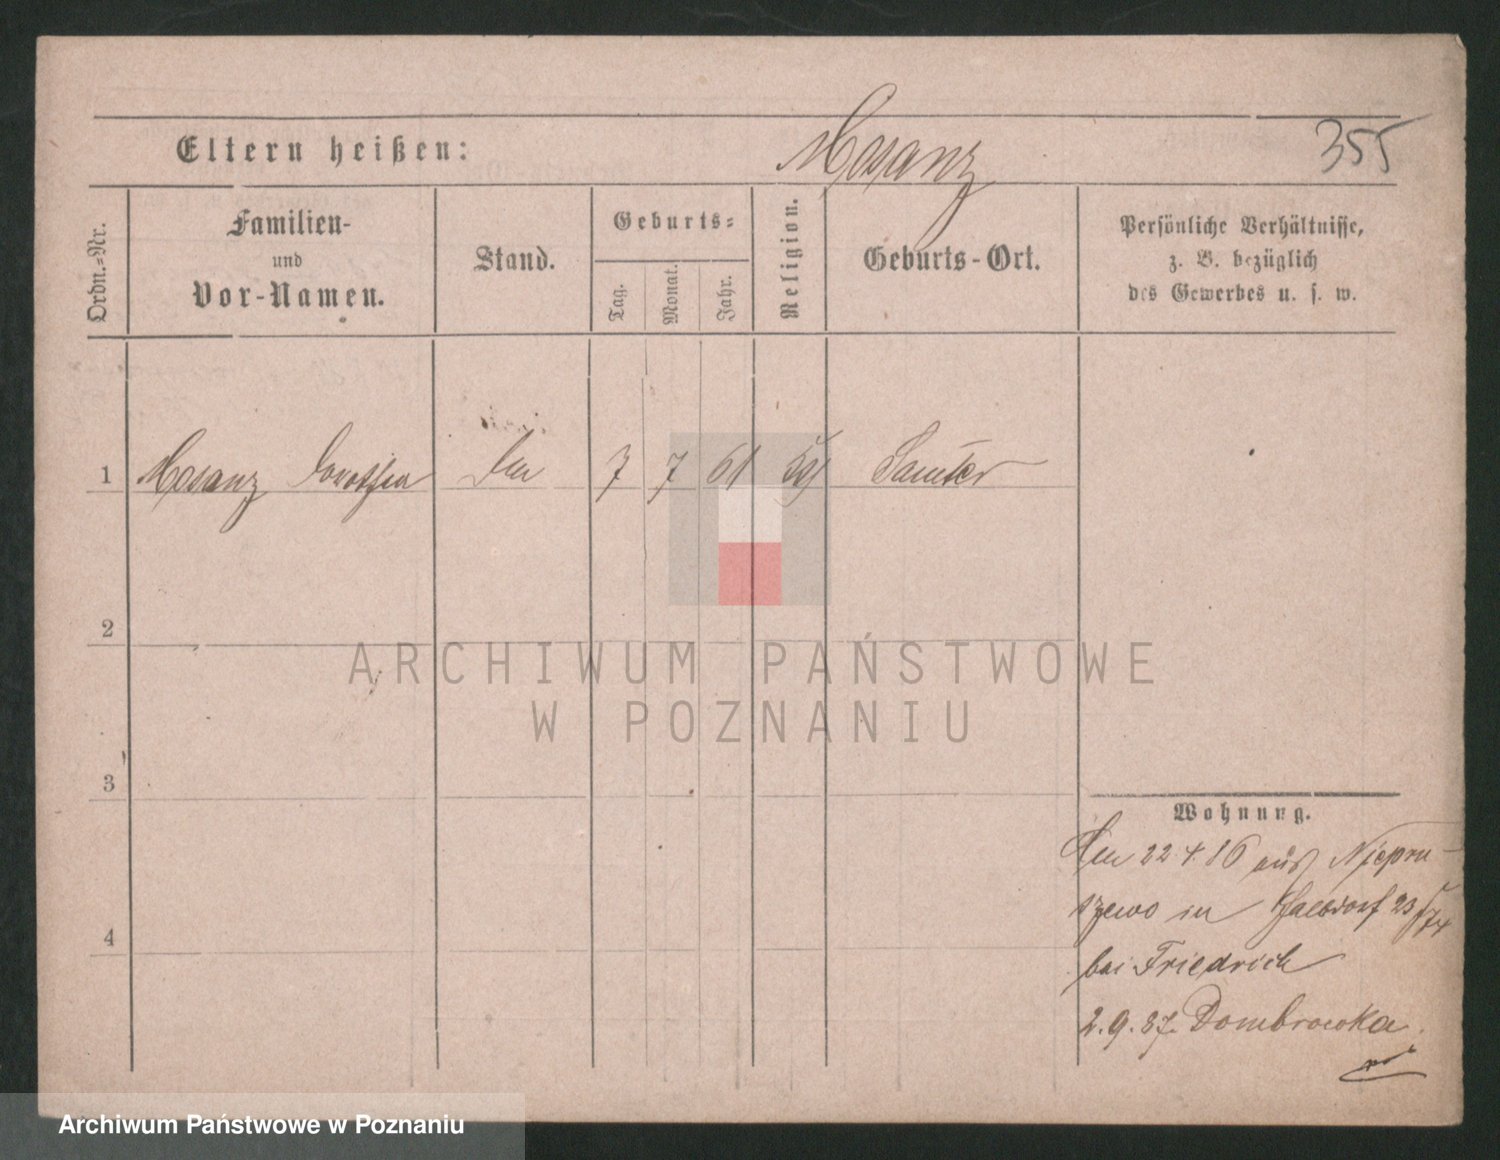 Eltern heißen:
Mosanz
355
Ordn.-Nr.
Familien-
und
Vor-Namen.
Stand.
Geburts-
Tag.
Monat.
Jahr.
Religion.
Geburts-Ort.
Persönliche Verhältnisse,
z. B. bezüglich
des Gewerbes u. s. w.
1 Mosanz Dorothea 7 7 61 Samter
2
3
4
ARCHIWUM PAŃSTWOWE
W POZNANIU
Wohnung.
22 4 86 aus Niepru-
szewo in 23
bei Friedrich
2.9.87. Dombrowka
Archiwum Państwowe w Poznaniu